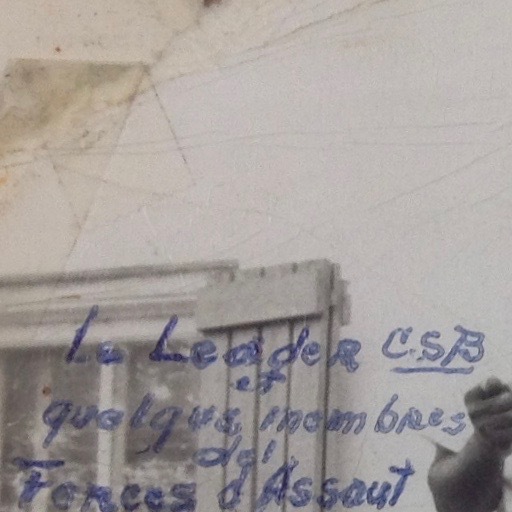 Le Leader C.S.B
et
quelques membres
des
Forces d'Assaut